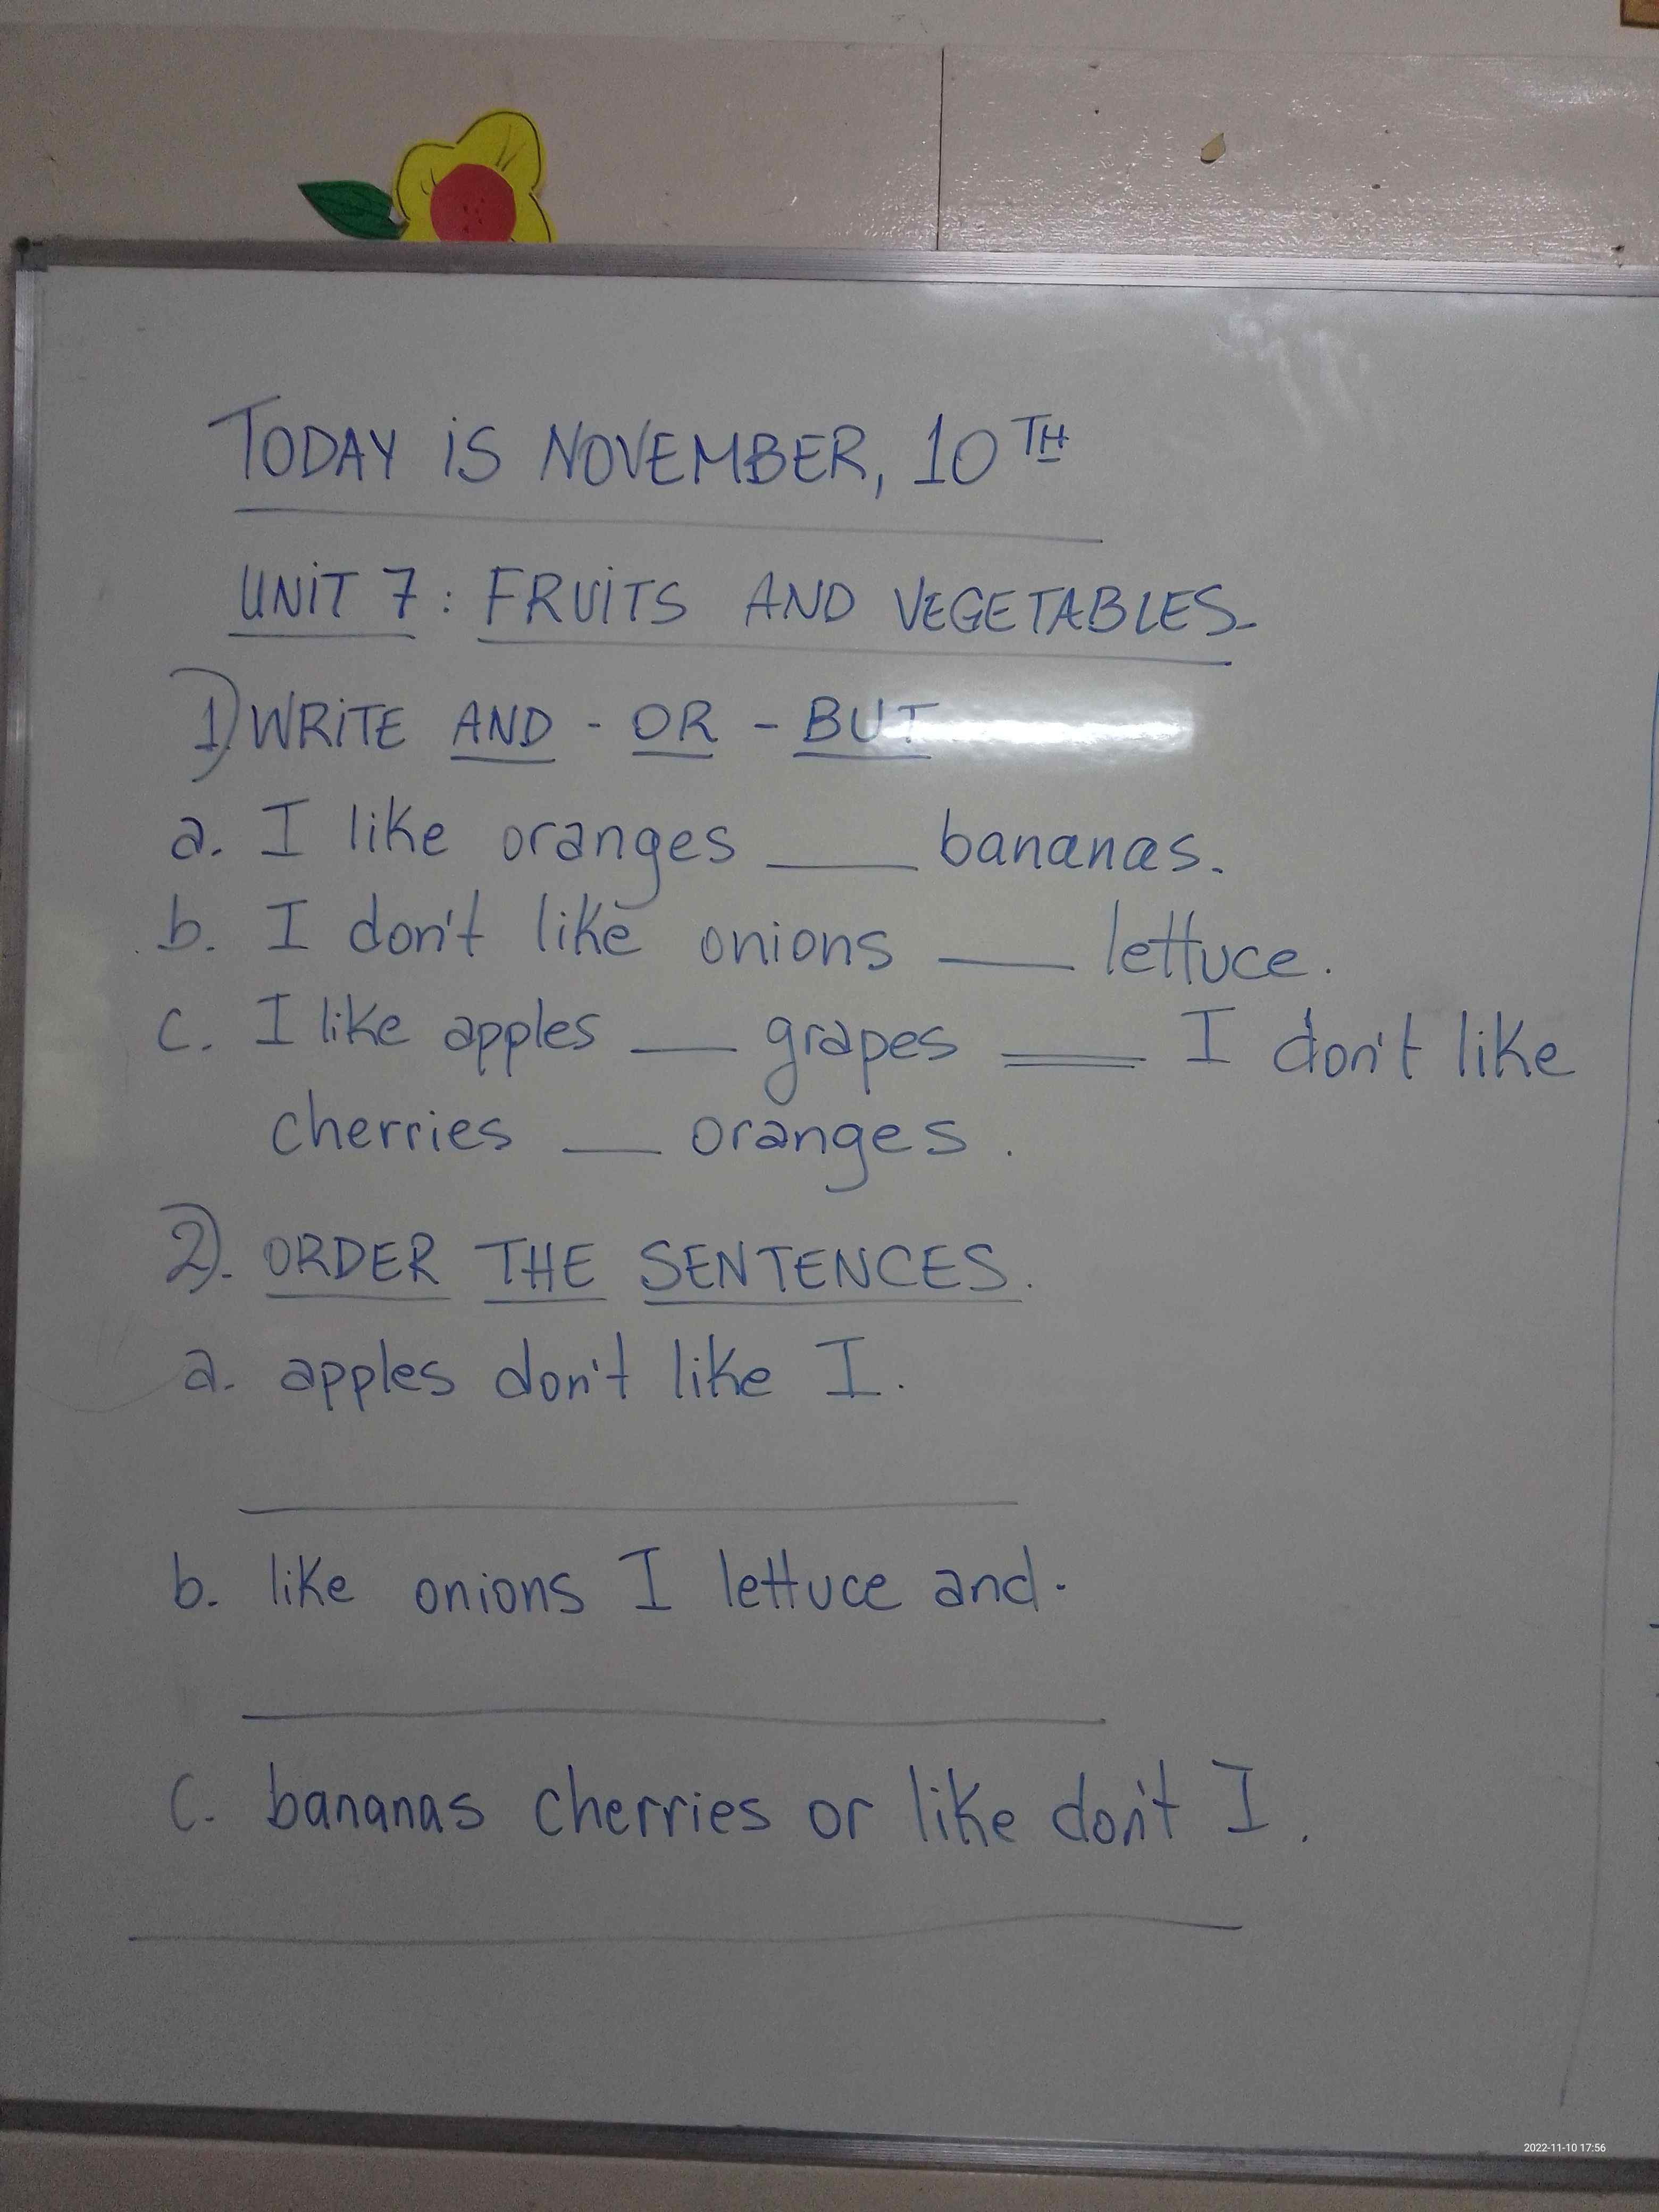 TODAY iS NOVEMBER, 10TH
UNiT 7: FRUiTS AND VEGETABLES-
1) WRiTE AND - OR - BUT
a. I like oranges ___ bananas.
b. I don't like onions ___ lettuce.
c. I like apples ___ grapes ___ I don't like
cherries ___ oranges.
2). ORDER THE SENTENCES.
a. apples don't like I.
b. like onions I lettuce and.
c. bananas cherries or like don't I.
2022-11-10 17:56